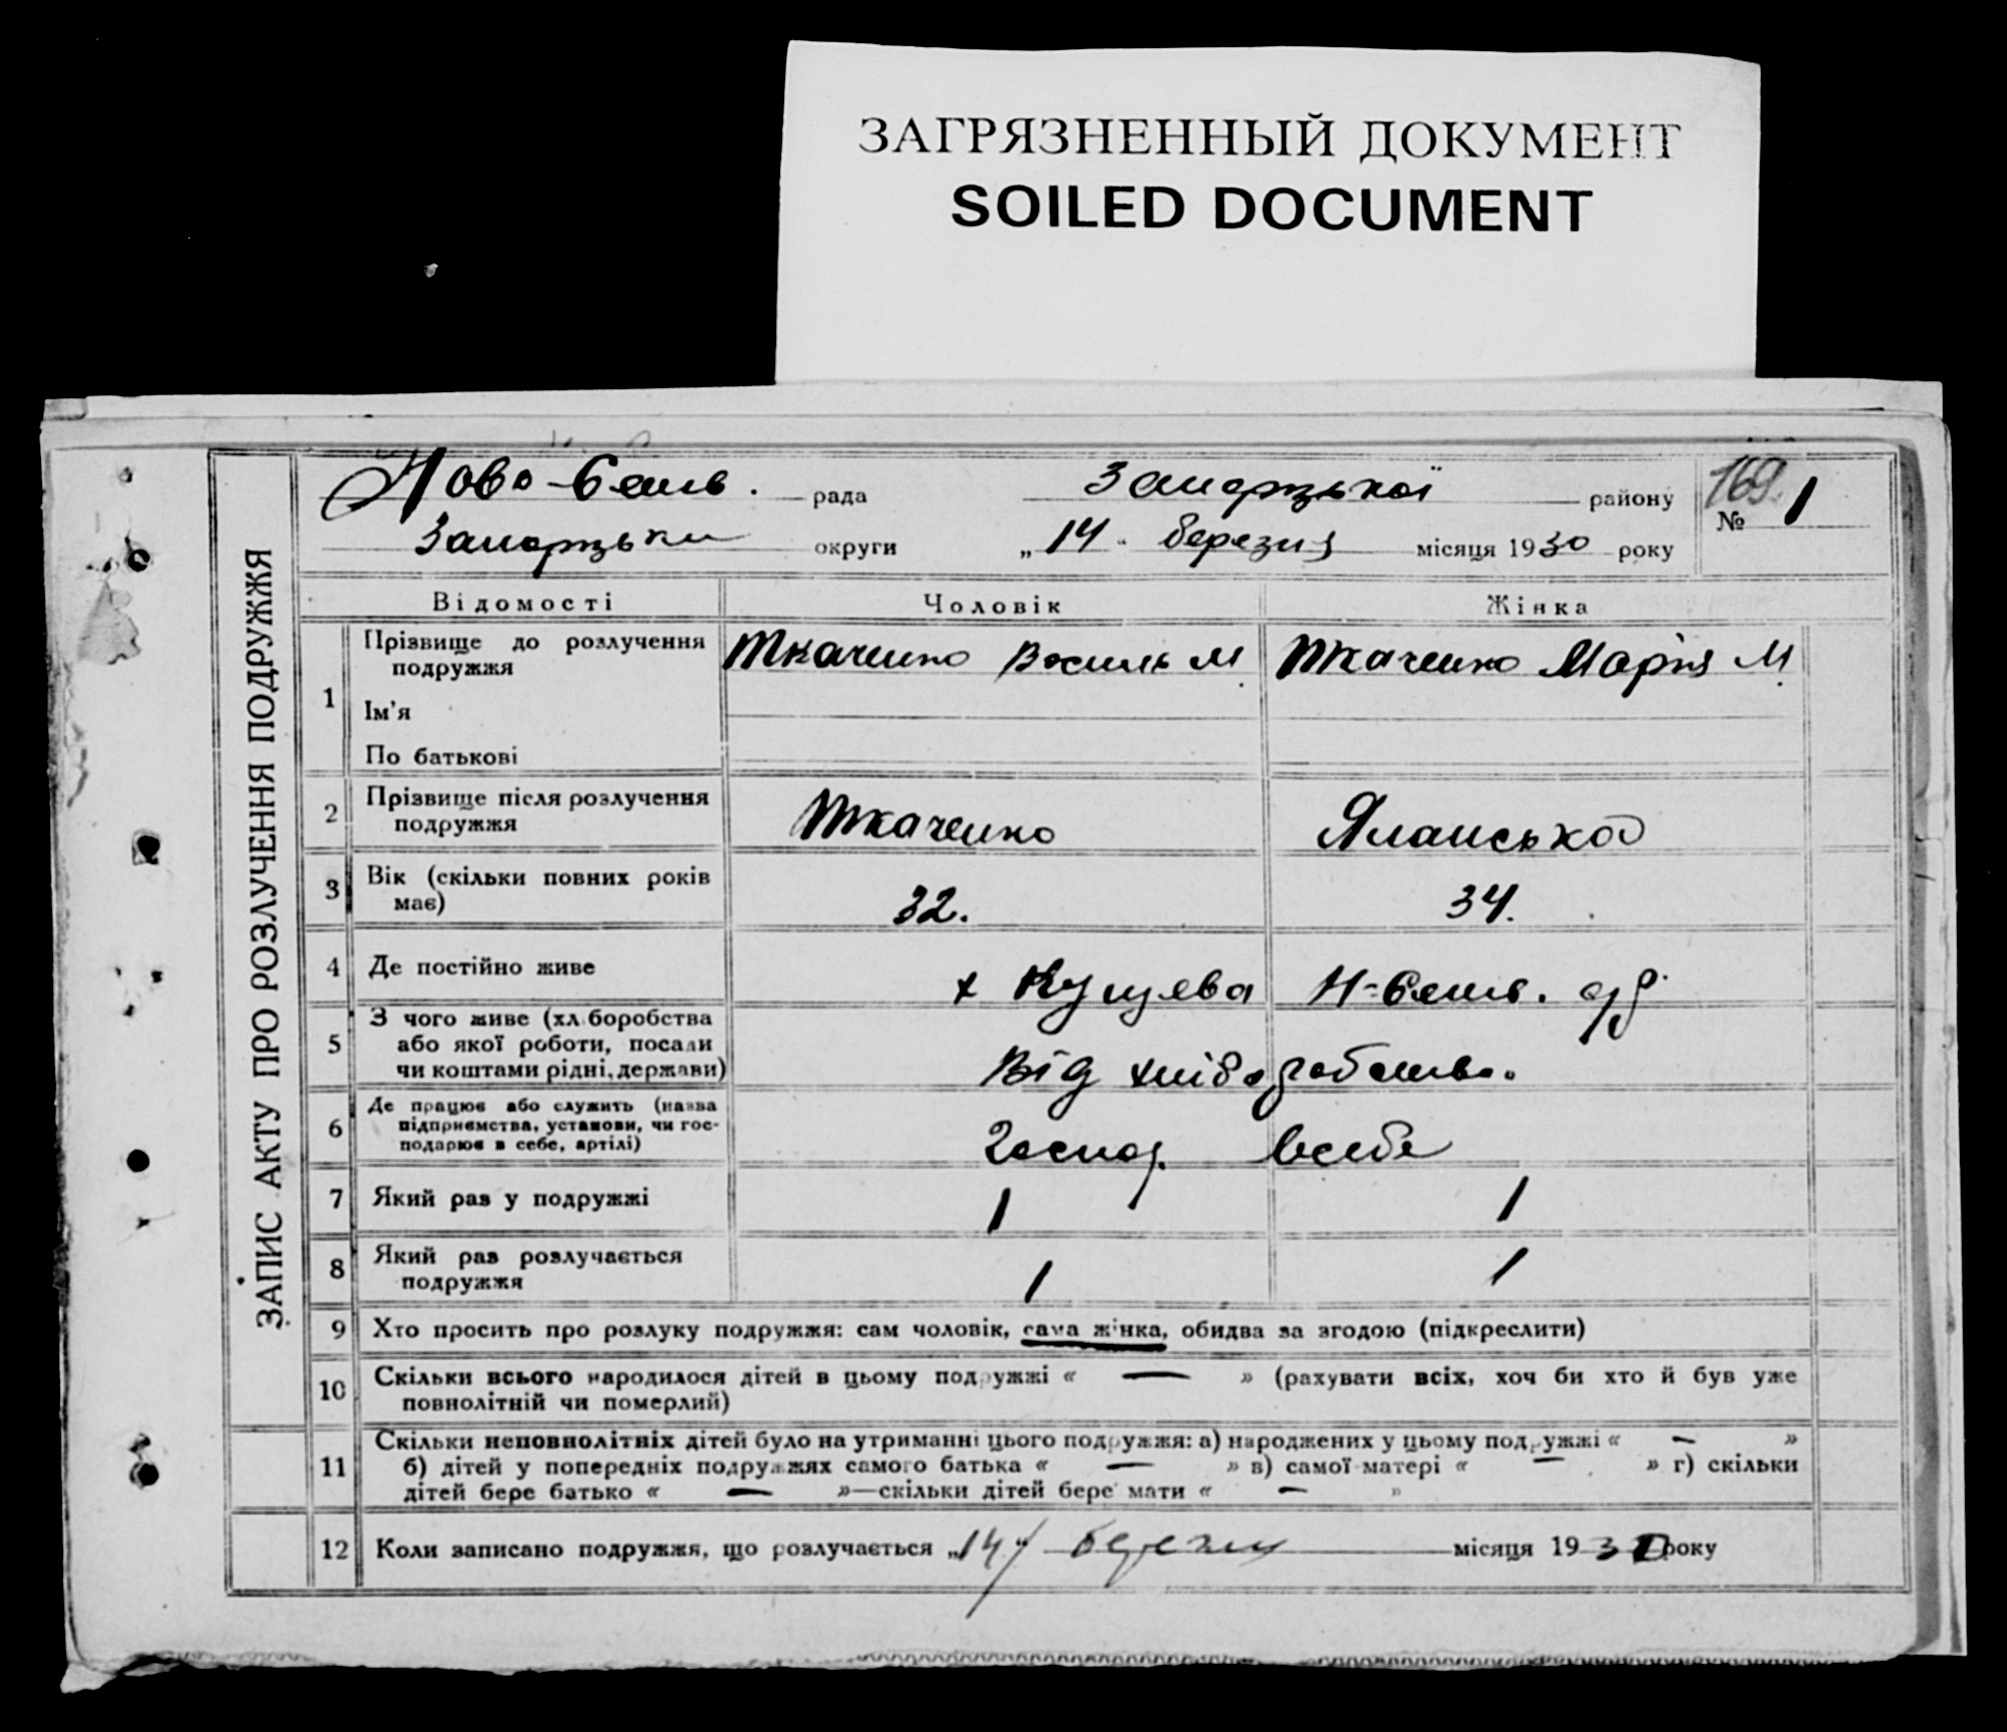 ЗАГРЯЗНЕННЫЙ ДОКУМЕНТ
SOILED DOCUMENT
ЗАПИС АКТУ ПРО РОЗЛУЧЕННЯ ПОДРУЖЖЯ
рада району 169.
№ 1
округи „14" березня місяця 1930 року
Відомості Чоловік Жінка
1 Прізвище до розлучення подружжя Ткаченко Василь М Ткаченко Марія М.
Ім'я
По батькові
2 Прізвище після розлучення Ткаченко Яланська
подружжя
3 Вік (скільки повних років 32. 34.
має)
4 Де постійно живе х
5 З чого живе (хл.боробства
або якої роботи, посади
чи коштами рідні, держави) Від хліборобства.
6 Де працює або служить (назва
підприємства, установи, чи гос-
подарює в себе, артілі) Господ. всебе
7 Який раз у подружжі 1 1
8 Який раз розлучається 1 1
подружжя
9 Хто просить про розлуку подружжя: сам чоловік, сама жінка, обидва за згодою (підкреслити)
10 Скільки всього народилося дітей в цьому подружжі « — » (рахувати всіх, хоч би хто й був уже
повнолітній чи померлий)
11 Скільки неповнолітніх дітей було на утриманні цього подружжя: а) народжених у цьому подружжі « — »
б) дітей у попередніх подружжях самого батька « — » в) самої матері « — » г) скільки
дітей бере батько « — »—скільки дітей бере мати « — »
12 Коли записано подружжя, що розлучається „14" місяця 1930 року